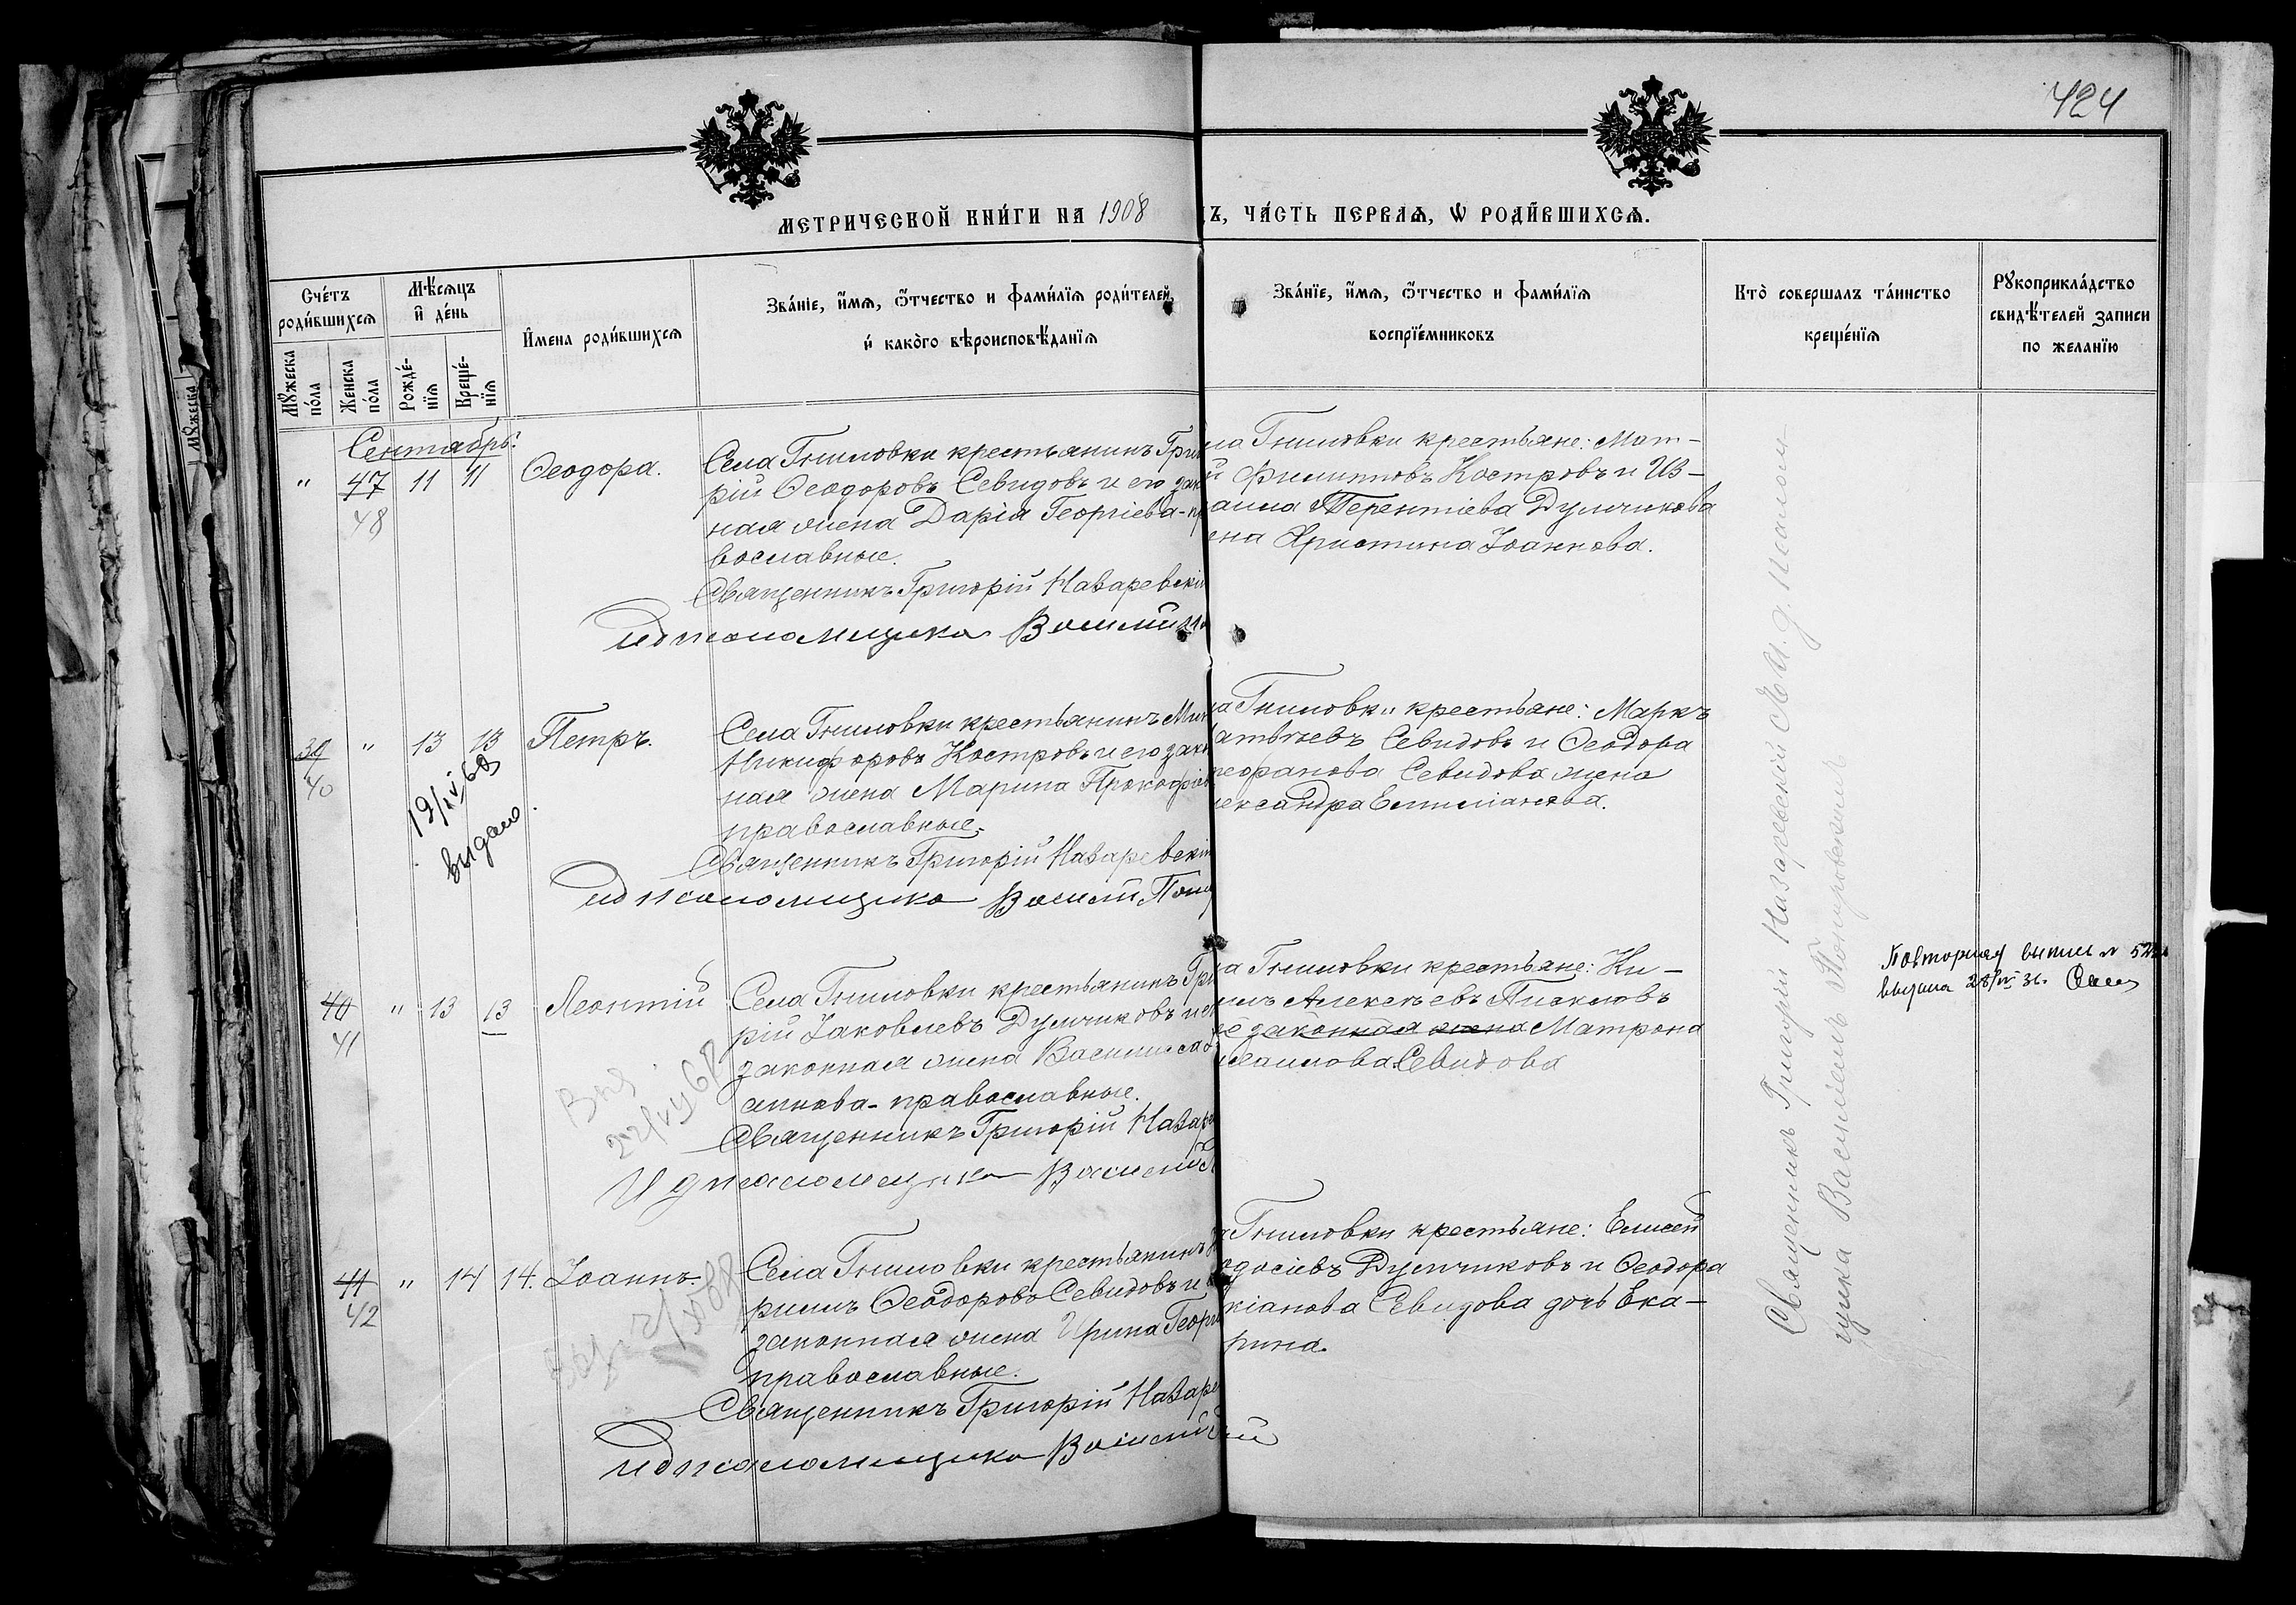 424
МЕТРИЧЕСКОЙ КНИГИ НА 1908
Ъ, ЧАСТЬ ПЕРВАЯ, Ѡ РОДИВШИХСЯ.
Счетъ родившихся
Мужеска пола
Женска пола
Мѣсяцъ и день
Рожденія
Крещенія
Имена родившихся
Званіе, имя, отчество и фамилія родителей,
и какого вѣроисповѣданія
Званіе, имя, отчество и фамилія
воспріемниковъ
Кто совершалъ таинство
крещенія
Рукоприкладство
свидѣтелей записи
по желанію
Сентябрь.
" 47 11 11 Ѳеодора.
48
Села Гниловки крестьянинъ Гри
рій Ѳеодоровъ Севидовъ и его зак
ная жена Дарія Георгіева - пр
вославные.
Священникъ Григорій Назаревскій
И д псаломщика Василій
ла Гниловки крестьяне: Мат-
й Филипповъ Костровъ и Из-
аила Терентіева Думчикова
ена Христина Іоаннова.
39 " 13 13 Петръ.
40
19/IV 68
выдано.
Села Гниловки крестьянинъ
Никифоровъ Костровъ и его зак
ная жена Марина Прокофіев
православные.
Священникъ Григорій Назаревскій
И д псаломщика Василій
ла Гниловки крестьяне: Маркъ
атѳѣевъ Севидовъ и Ѳеодора
еофанова Севидова жена
лександра Емиліанова.
40 " 13 13 Леонтій
41
Села Гниловки крестьянинъ Гри
рій Іаковлевъ Думчиковъ и е
законная жена Василисса
аннова - православные.
Священникъ Григорій Назаре
И д псаломщика Василій
ла Гниловки крестьяне: Ки-
Алексѣевъ и
законная жена Матрона
Севидова
Повторная выпись №
выдана 28/IV 36.
41 " 14 14. Іоаннъ.
42
Села Гниловки крестьянинъ
риллъ Ѳеодоровъ Севидовъ и
законная жена Ирина Георг
православные.
Священникъ Григорій Назаре
И д псаломщика Василій
Гниловки крестьяне: Елисей
одосіевъ Думчиковъ и Ѳеодора
кіанова Севидова дочь Ека-
рина.
Священникъ Григорій Назаревскій И. д. псалом-
щика Василій